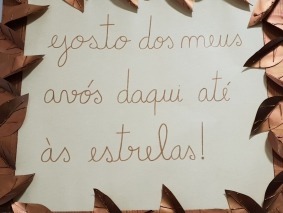 gosto dos meus
avós daqui até
às estrelas!